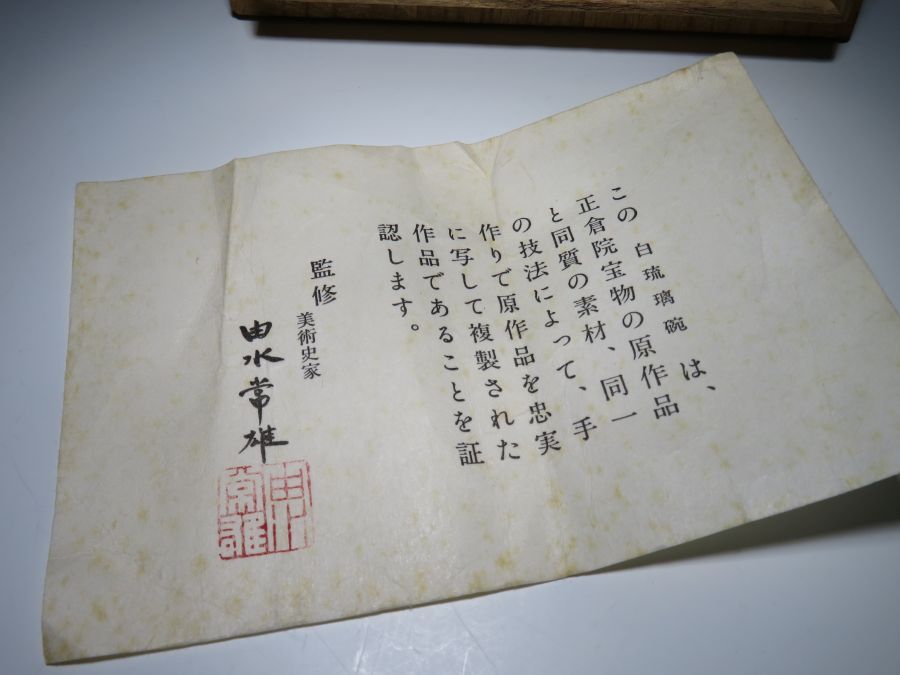 この 白琉璃碗 は、
正倉院宝物の原作品
と同質の素材、同一
の技法によって、手
作りで原作品を忠実
に写して複製された
作品であることを証
認します。
監修 美術史家
由水常雄
由水
常雄